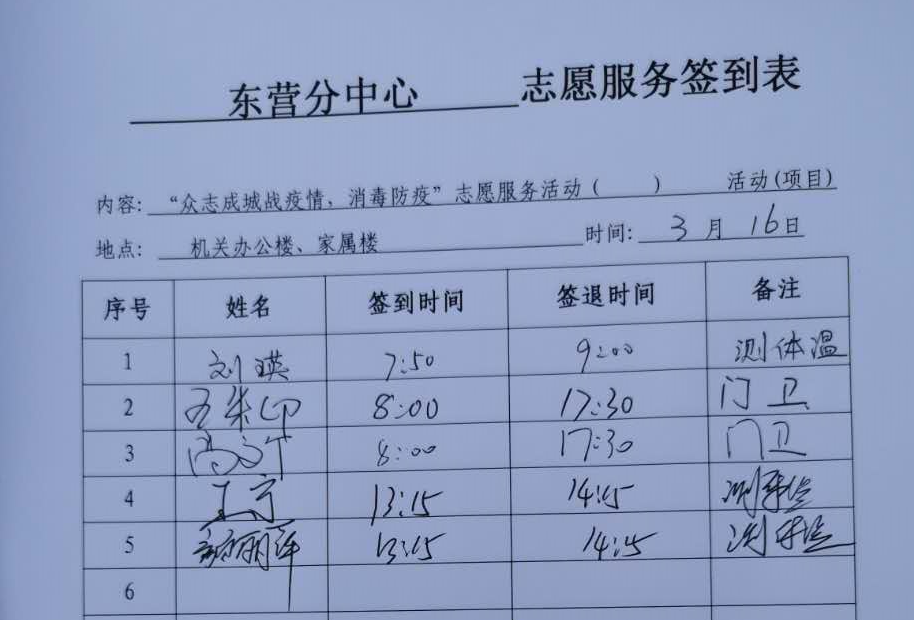 东营分中心 志愿服务签到表
内容: “众志成城战疫情，消毒防疫”志愿服务活动( ) 活动(项目)
地点: 机关办公楼、家属楼 时间: 3月16日
序号 姓名 签到时间 签退时间 备注
1 刘瑛 7:50 9:00 测体温
2 8:00 17:30 门卫
3 8:00 17:30 门卫
4 13:15 14:45 测体温
5 13:15 14:45 测体温
6